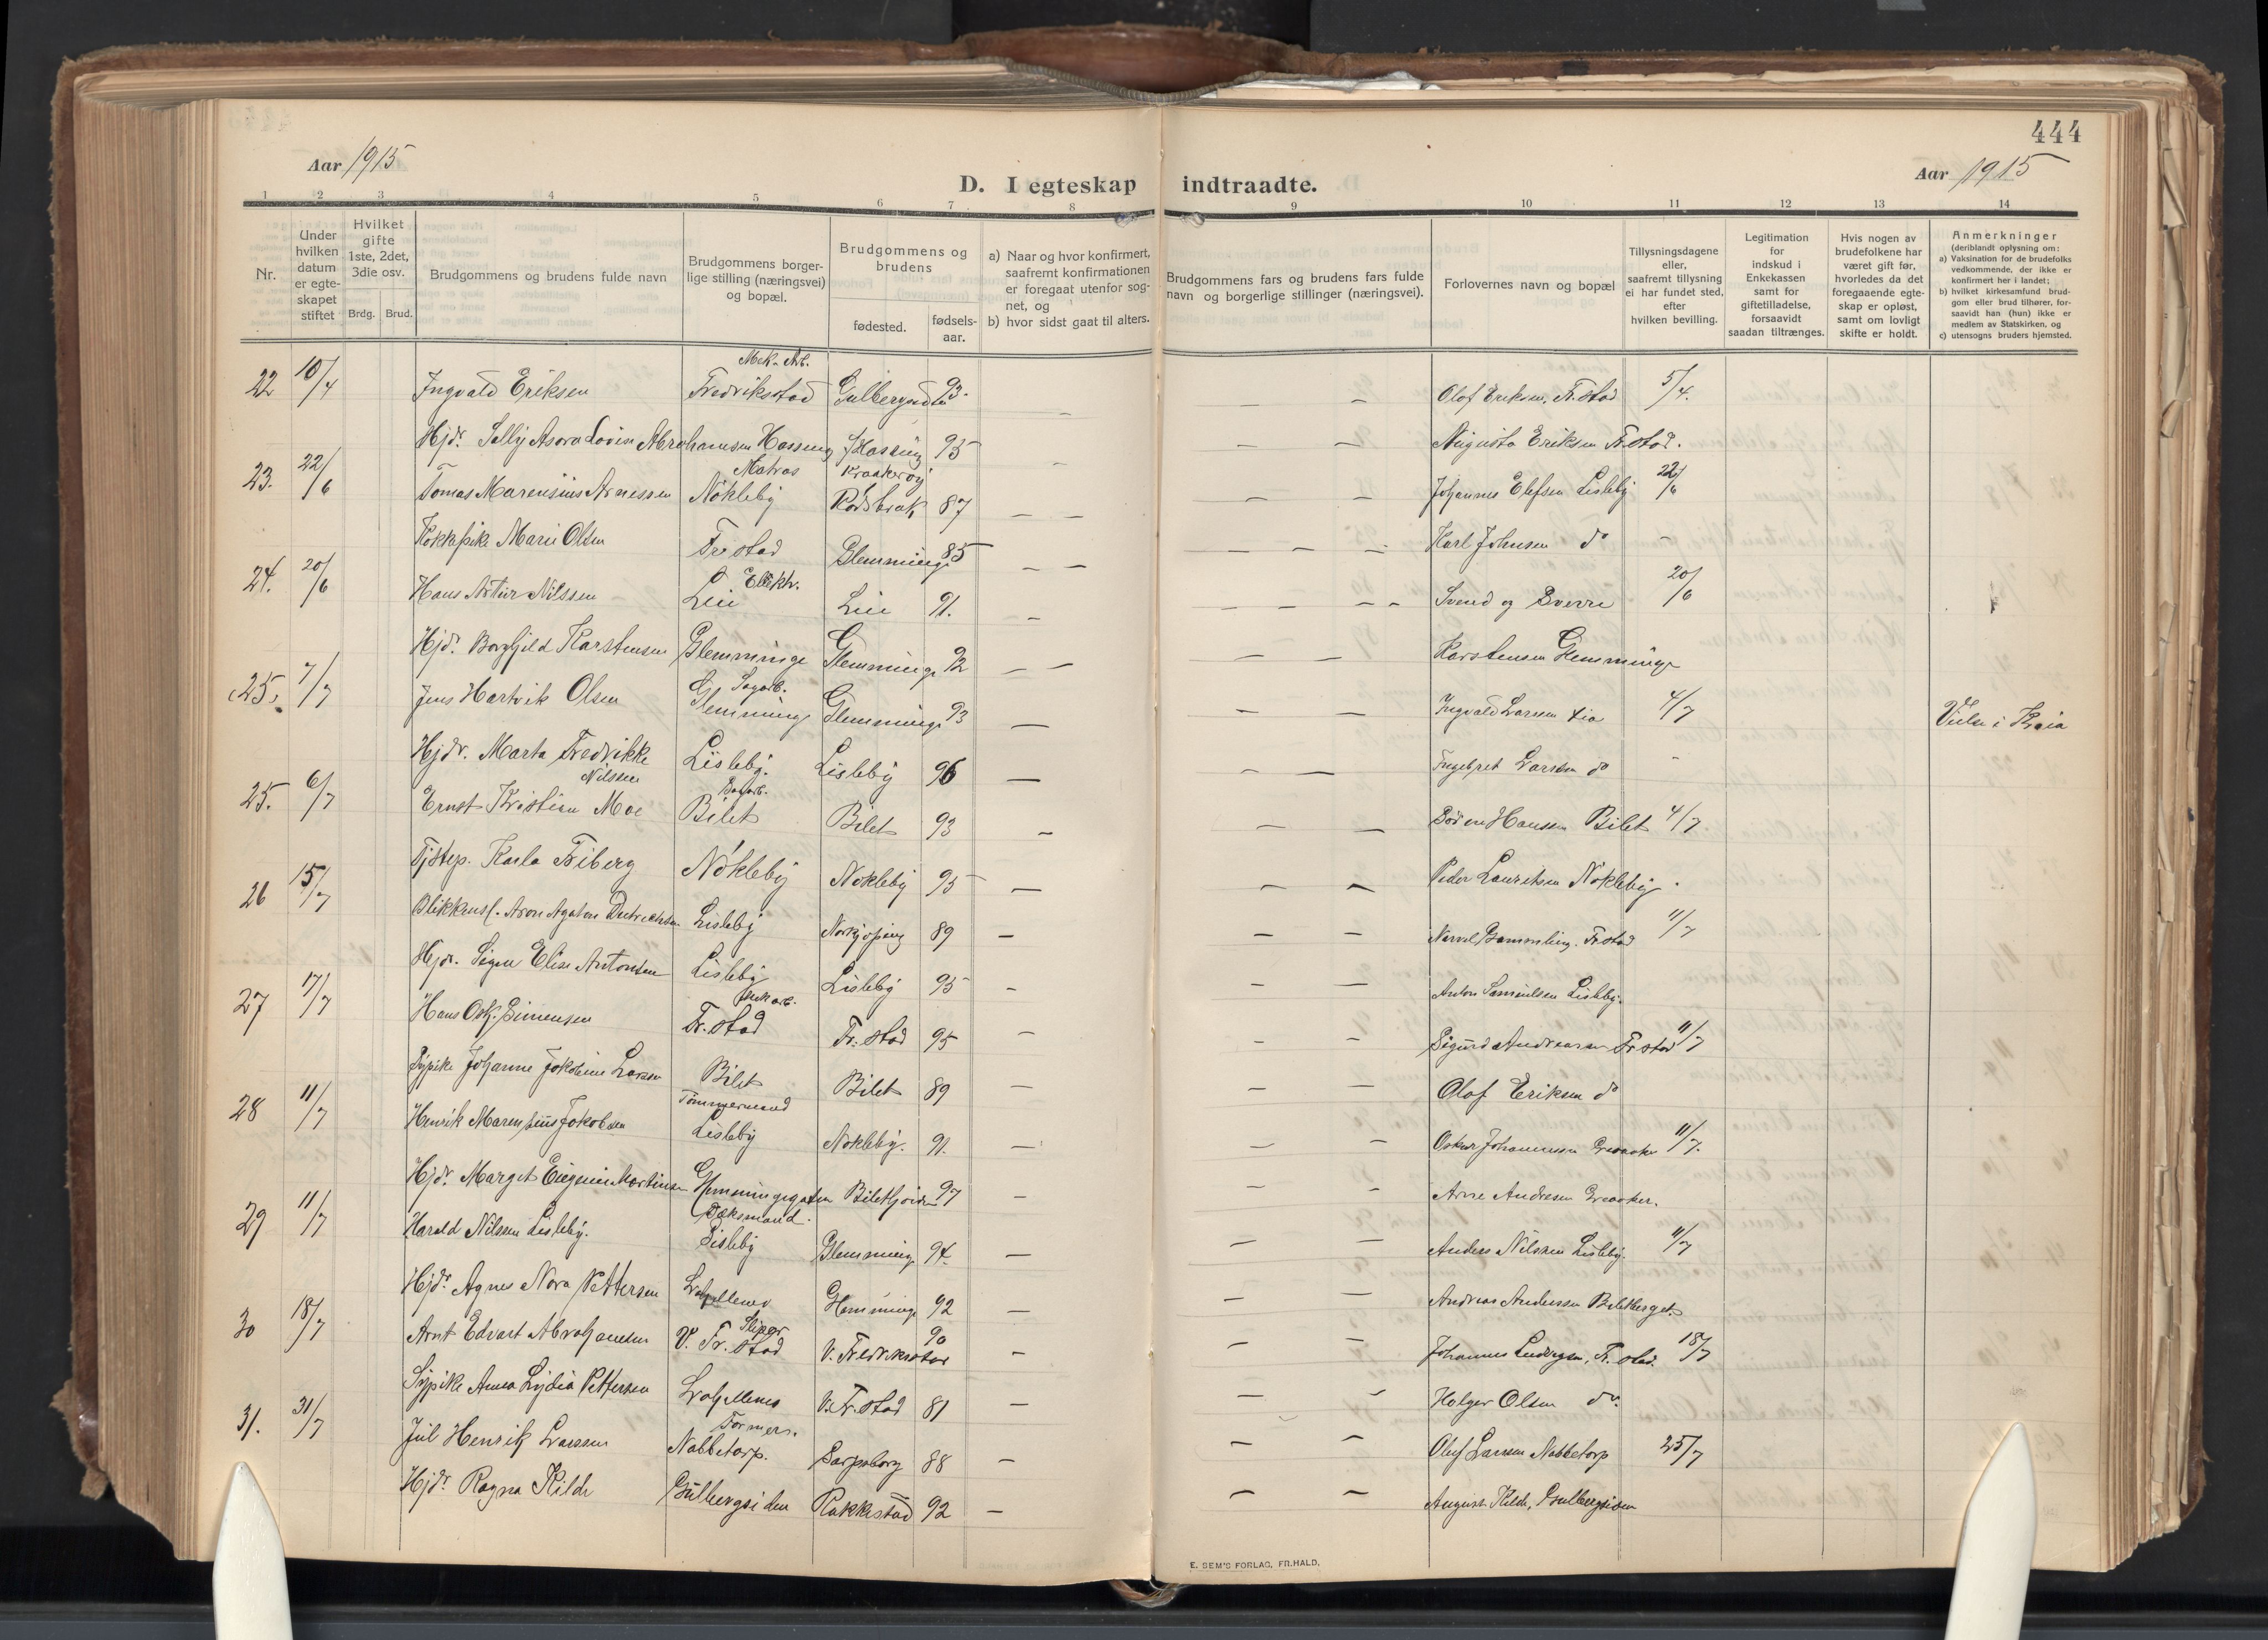 444
Aar 1915
Aar 1915
D. I egteskap indtraadte.
1 2 3 4 5 6 7 8 9 10 11 12 13 14
Nr.
Under hvilken datum er egteskapet stiftet
Hvilket gifte 1ste, 2det, 3die osv.
Brdg. Brud.
Brudgommens og brudens fulde navn
Brudgommens borgerlige stilling (næringsvei) og bopæl.
Brudgommens og brudens
fødested.
fødselsaar.
a) Naar og hvor konfirmert, saafremt konfirmationen er foregaat utenfor sognet, og
b) hvor sidst gaat til alters.
Brudgommens fars og brudens fars fulde navn og borgerlige stillinger (næringsvei).
Forlovernes navn og bopæl
Tillysningsdagene eller, saafremt tillysning ei har fundet sted, efter hvilken bevilling.
Legitimation for indskud i Enkekassen samt for giftetilladelse, forsaavidt saadan tiltrænges.
Hvis nogen av brudefolkene har været gift før, hvorledes da det foregaaende egteskap er opløst, samt om lovligt skifte er holdt.
Anmerkninger
(deriblandt oplysning om:
a) Vaksination for de brudefolks vedkommende, der ikke er konfirmert her i landet;
b) hvilket kirkesamfund brudgom eller brud tilhører, forsaavidt han (hun) ikke er medlem av Statskirken, og
c) utensogns bruders hjemsted.
22 10/4 Ingvald Eriksen Mek. Arb. Fredriksstad 93. – – – Olof Eriksen, Fr.stad 5/4.
Hjdr. Abrahamsen 95 – – – Augusta Eriksen Fr.stad.
23. 22/6 Tomas Marensius Arnessen Matros Nökleby Kraakeröy 87 – – – – Johannes Elefsen Lisleby 22/6
Kokkepike Marie Olsen Fr stad Glemminge 85 – – – – – Karl Johnsen do –
24. 20/6 Hans Artur Nilssen Elektr. Lie Lie 91. – – – – – Svend og Sverre 20/6
Hjdr. Borghild Karstensen Glemminge Glemminge 92 – – – – Karstensen Glemminge
25. 7/7 Jens Hartvik Olsen Sagarb. Glemminge Glemminge 93 – – – Ingvald Larssen Lia 4/7 Vielse i Kraia
Hjdr. Marta Fredrikke Nilssen Lisleby. Lisleby 96 – – – Ingebret Larssen do –
25. 6/7 Ernst Kristian Moe Sagarb. Bilet Bilet 93 – – – Sören Hansen Bilet 4/7
Tjstep. Karla Friberg Nökleby Nökleby 95 – – – Peder Lauritsen Nökleby.
26 15/7 Blikkensl. Aron Agaton Lisleby Norkjöping 89 – – – Fr stad 11/7
Hjdr. Signe Elise Antonsen Lisleby Lisleby 95 – – – Anton Samuelsen Lisleby.
27 17/7 Hans Osk. Simensen Mek arb. Fr. stad Fr. stad 95 – – – Sigurd Andreassen Fr stad 11/7
Sypike Johanne Jakobine Larsen Bilet Bilet 89 – – – Olof Eriksen do
28 11/7 Henrik Marensius Jakobsen Tömmermand Lisleby Nökleby. 91. – – – Oskar Johannessen Greaaker 11/7.
Hjdr. Margit Eugenie Martinsen Glemmingegaten 97 – – – Arne Andresen Greaaker.
29 11/7 Harald Nilssen Lisleby. Döksmand. Lisleby Glemminge 94. – – – Anders Nilssen Lisleby. 11/7
Hjdr. Agnes Nora Pettersen Glemminge 92 – – – Andreas Andersen Biletberget.
30 18/7 Arnt Edvart Abrahamsen Sliper V. Fr. stad V. Fredriksstad 90 – – – Johannes Ludvigsen, Fr. stad. 18/7
Sypike Anna Lydia Pettersen V. Fr. stad 81 – – – Holger Olsen do.
31. 31/7 Jul Henrik Larssen Formers. Nabbetorp. Sarpsborg 88 – – – Oluf Larssen Nabbetorp 25/7
Hjdr. Ragna Kilde Gulbergsiden Rakkestad 92 – – – August Kilde, Gulbergsiden
E. SEM'S FORLAG, FR.HALD.